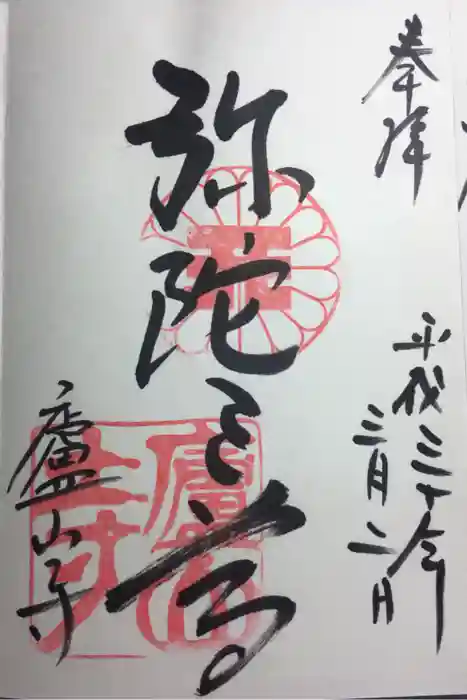 奉拝
平成三十年
三月二日
弥陀三尊
廬山寺